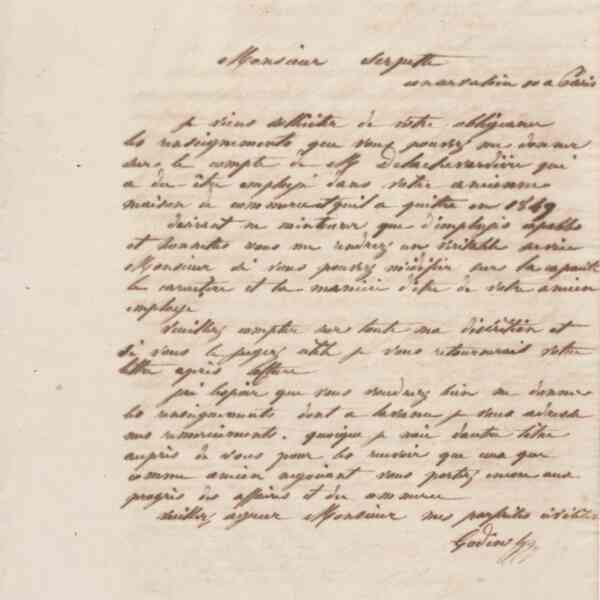 Monsieur Serpette
a Paris
je viens solliciter de votre obligeance
les renseignements que vous pouvez me donner
sur le compte de M Delachevardière qui
a du être employé dans votre ancienne
maison de commerce et qu'il a quittée en 1849
desirant ne m'entourer que d'employés capables
et honnetes vous me rendrez un véritable service
Monsieur si vous pouvez m'édifier sur la capacité
le caractère et la manière d'être de votre ancien
employé
Veuillez compter sur toute ma discrétion et
si vous le jugez utile je vous retournerais votre
lettre après affaire
j'ai l'espoir que vous voudrez bien me donner
les renseignements dont a l'avance je vous adresse
mes remerciements. quoique je n'aie d'autre titre
auprès de vous pour les recevoir que ceux que
comme ancien négociant vous portez encore aux
progrès des affaires et du commerce
veuillez agréer Monsieur mes parfaites civilités
Godin